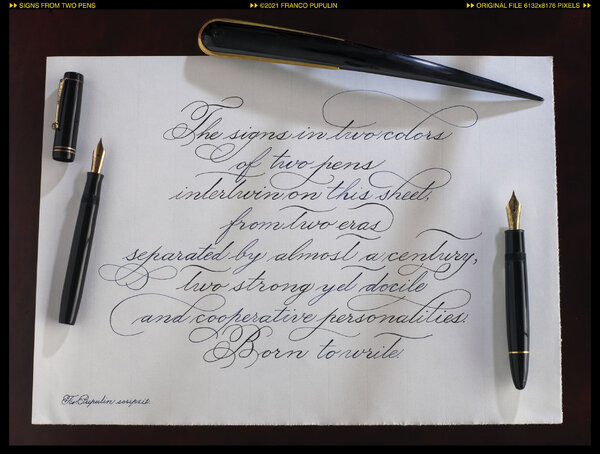 ▸▸ SIGNS FROM TWO PENS
▸▸ ©2021 FRANCO PUPULIN
▸▸ ORIGINAL FILE 6132x8176 PIXELS ▸▸
The signs in two colors
of two pens
intertwin on this sheet,
from two eras
separated by almost a century,
two strong yet docile
and cooperative personalities.
Born to write.
Fr. Pupulin scripsit